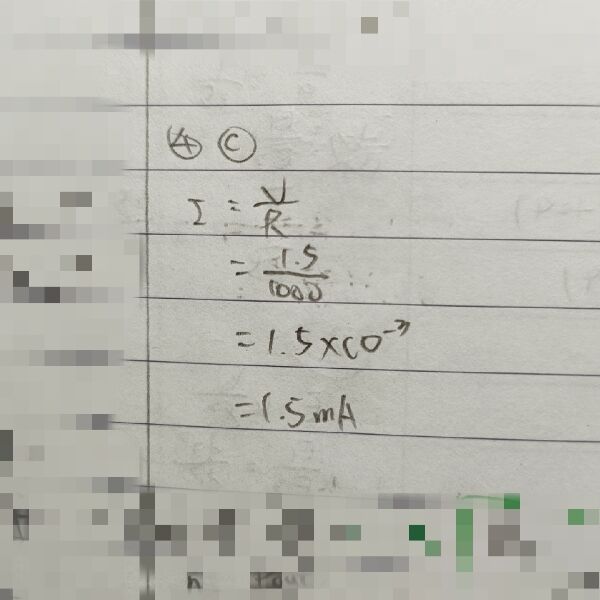 ④ Ⓒ
I = V/R
= 1.5/1000
= 1.5 × 10⁻³
= 1.5 mA